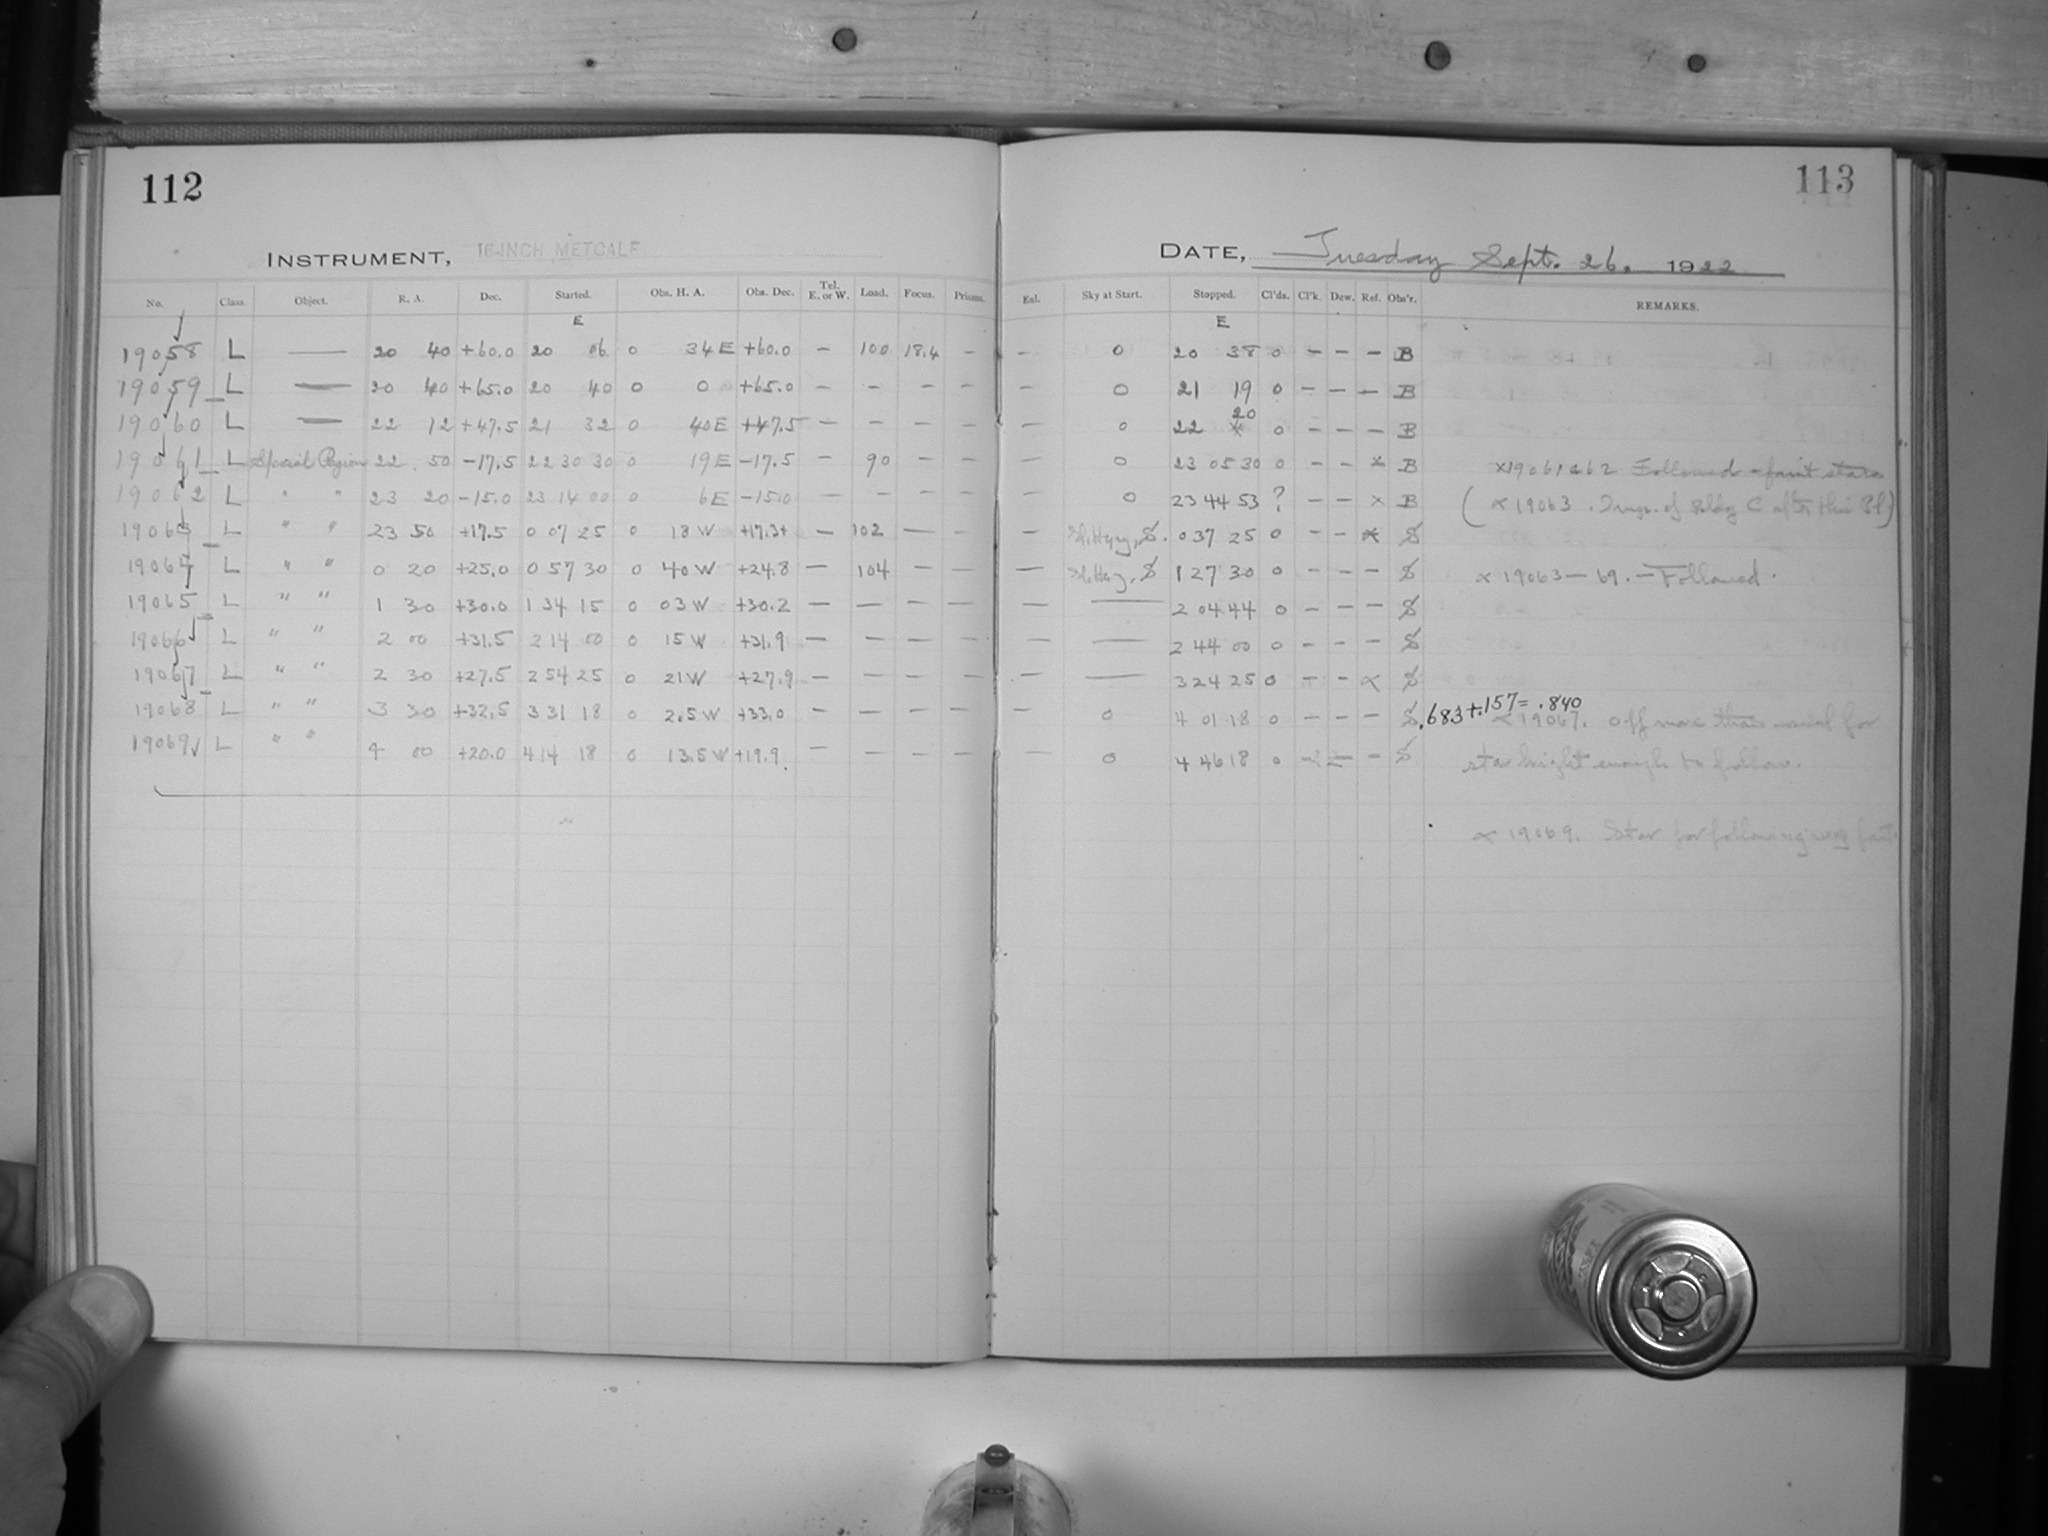 112
INSTRUMENT, 16-INCH METCALF
No. Class. Object. R. A. Dec. Started. Obs. H. A. Obs. Dec. Tel. E. or W. Load. Focus. Prisms.
E
19058 L — 20 40 +60.0 20 06 0 34 E +60.0 – 100 18.4 –
19059 L — 20 40 +65.0 20 40 0 0 +65.0 – – – –
19060 L — 22 12 +47.5 21 32 0 40 E +47.5 – – – –
19061 L Special Region 22 50 -17.5 22 30 30 0 19 E -17.5 – 90 – –
19062 L " " 23 20 -15.0 23 14 00 0 6 E -15.0 – – – –
19063 L " " 23 50 +17.5 0 07 25 0 18 W +17.3+ – 102 – –
19064 L " " 0 20 +25.0 0 57 30 0 40 W +24.8 – 104 – –
19065 L " " 1 30 +30.0 1 34 15 0 03 W +30.2 – – – –
19066 L " " 2 00 +31.5 2 14 00 0 15 W +31.9 – – – –
19067 L " " 2 30 +27.5 2 54 25 0 21 W +27.9 – – – –
19068 L " " 3 30 +32.5 3 31 18 0 2.5 W +33.0 – – – –
19069 L " " 4 00 +20.0 4 14 18 0 13.5 W +19.9 – – – –
113
DATE, Tuesday Sept. 26. 1922
Eal. Sky at Start. Stopped. Cl'ds. Cl'k. Dew. Ref. Obs'r. REMARKS.
E
– 0 20 38 0 – – – B
– 0 21 19 0 – – – B
– 0 22 20 0 – – – B
– 0 23 05 30 0 – – x B x19061 & 62 Followed – faint stars
– 0 23 44 53 ? – – x B (x 19063. of Bldg C after this Pl)
– S. 0 37 25 0 – – x S
– S 1 27 30 0 – – – S x 19063 – 69. – Followed.
– — 2 04 44 0 – – – S
– — 2 44 00 0 – – – S
– — 3 24 25 0 – – x S
– 0 4 01 18 0 – – – S .683+.157= .840 x 19067. Off more than usual for
– 0 4 46 18 0 – – – S star bright enough to follow.
x 19069. Star for following very faint